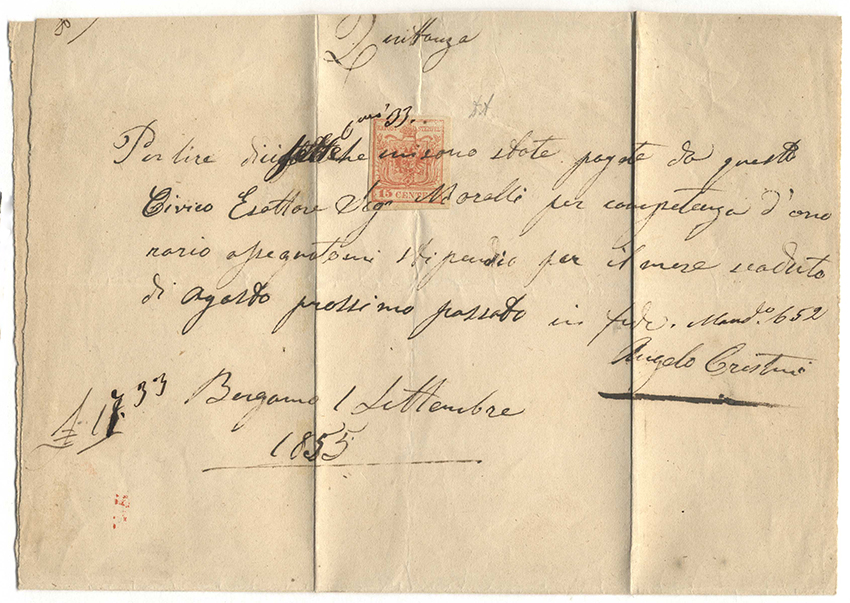 Quittanza
Cmi 33..
Per lire diciassette che mi sono state pagate da questo
Civico Esattore Sig. Moralli per competenza d'ono
15 CENTES
rario assegnatomi stipendio per il mese scaduto
di agosto prossimo passato in fede. Mand.o 652
Angelo Cristini
£ 17.33 Bergamo 1 Settembre
1855